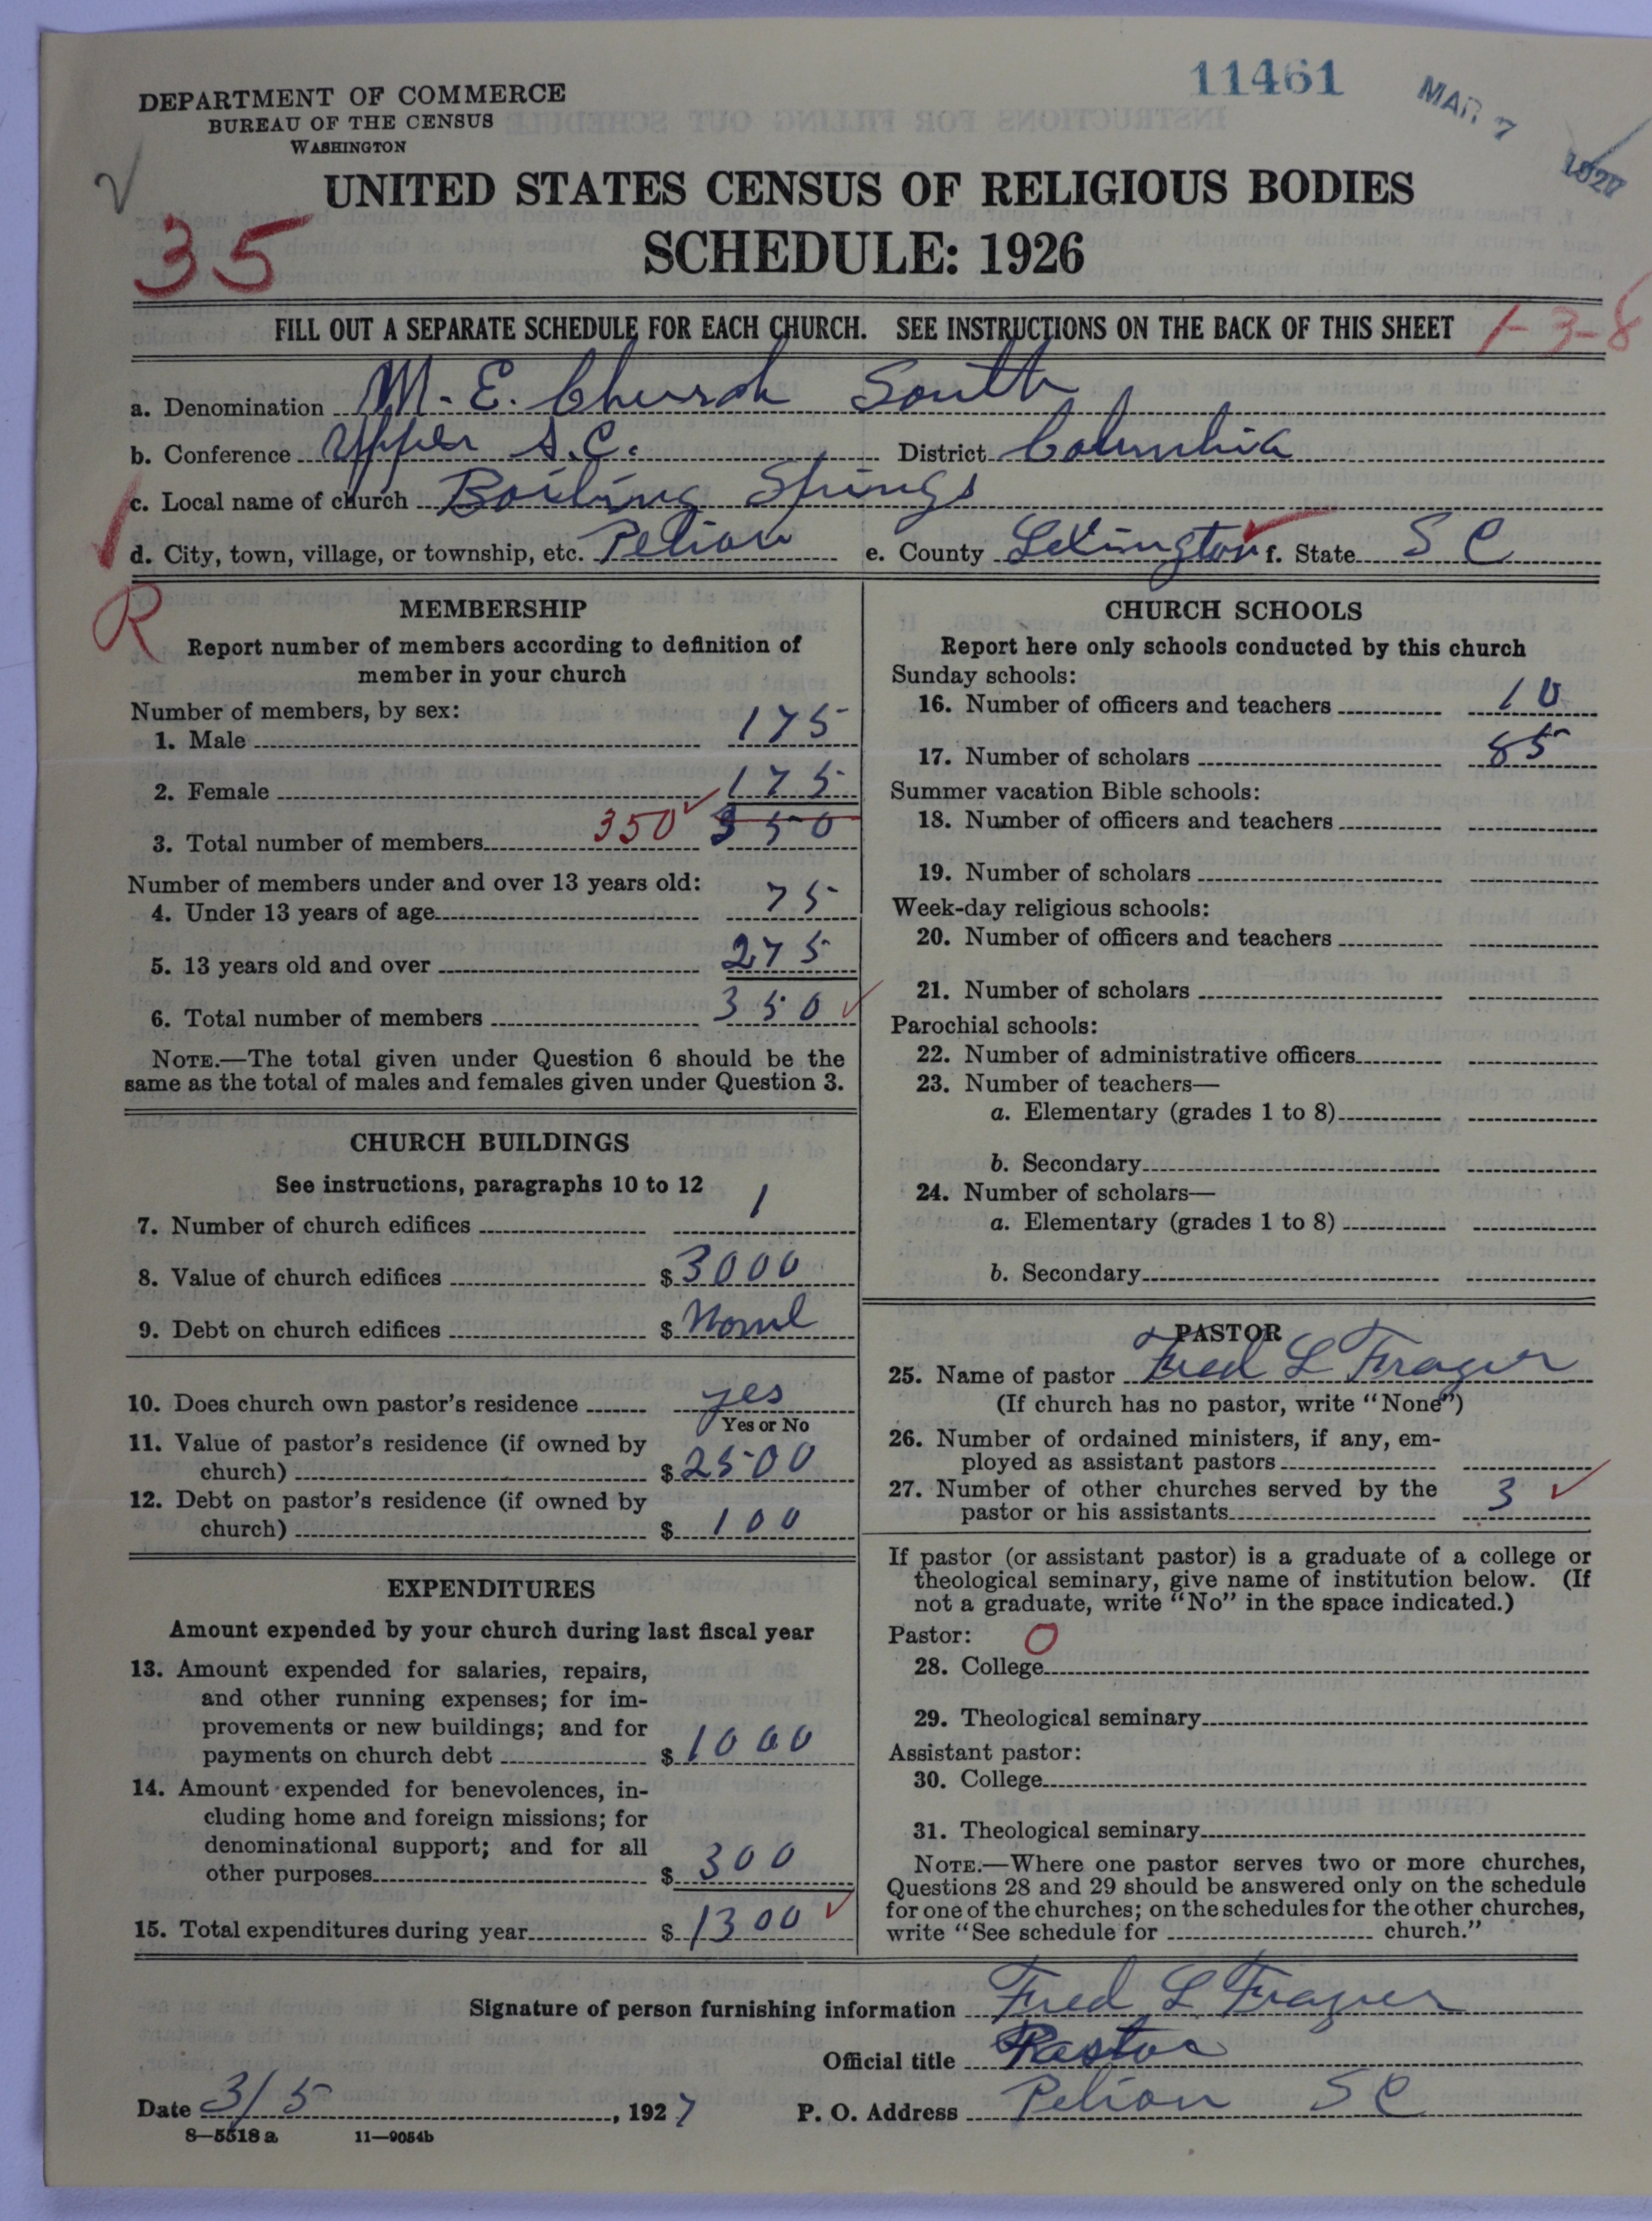 11461
MAR 7 1927
DEPARTMENT OF COMMERCE
BUREAU OF THE CENSUS
WASHINGTON
UNITED STATES CENSUS OF RELIGIOUS BODIES
SCHEDULE: 1926
35
FILL OUT A SEPARATE SCHEDULE FOR EACH CHURCH. SEE INSTRUCTIONS ON THE BACK OF THIS SHEET
1-3-8
a. Denomination M. E. Church South
b. Conference Upper S.C. District Columbia
c. Local name of church Boiling Springs
d. City, town, village, or township, etc. Pelion e. County Lexington f. State S C
R
MEMBERSHIP
Report number of members according to definition of
member in your church
Number of members, by sex:
1. Male 175
2. Female 175
3. Total number of members 350 350
Number of members under and over 13 years old:
4. Under 13 years of age 75
5. 13 years old and over 275
6. Total number of members 350
NOTE.—The total given under Question 6 should be the
same as the total of males and females given under Question 3.
CHURCH BUILDINGS
See instructions, paragraphs 10 to 12
7. Number of church edifices 1
8. Value of church edifices $3000
9. Debt on church edifices $
10. Does church own pastor's residence yes
Yes or No
11. Value of pastor's residence (if owned by
church) $2500
12. Debt on pastor's residence (if owned by
church) $100
EXPENDITURES
Amount expended by your church during last fiscal year
13. Amount expended for salaries, repairs,
and other running expenses; for im-
provements or new buildings; and for
payments on church debt $1000
14. Amount expended for benevolences, in-
cluding home and foreign missions; for
denominational support; and for all
other purposes $300
15. Total expenditures during year $1300
CHURCH SCHOOLS
Report here only schools conducted by this church
Sunday schools:
16. Number of officers and teachers 10
17. Number of scholars 85
Summer vacation Bible schools:
18. Number of officers and teachers
19. Number of scholars
Week-day religious schools:
20. Number of officers and teachers
21. Number of scholars
Parochial schools:
22. Number of administrative officers
23. Number of teachers—
a. Elementary (grades 1 to 8)
b. Secondary
24. Number of scholars—
a. Elementary (grades 1 to 8)
b. Secondary
PASTOR
25. Name of pastor Fred L Frazier
(If church has no pastor, write "None")
26. Number of ordained ministers, if any, em-
ployed as assistant pastors
27. Number of other churches served by the
pastor or his assistants 3
If pastor (or assistant pastor) is a graduate of a college or
theological seminary, give name of institution below. (If
not a graduate, write "No" in the space indicated.)
Pastor: O
28. College
29. Theological seminary
Assistant pastor:
30. College
31. Theological seminary
NOTE.—Where one pastor serves two or more churches,
Questions 28 and 29 should be answered only on the schedule
for one of the churches; on the schedules for the other churches,
write "See schedule for church."
Signature of person furnishing information Fred L Frazier
Official title Pastor
Date 3/5, 1927 P. O. Address Pelion S C
8—5518 a 11—9054b